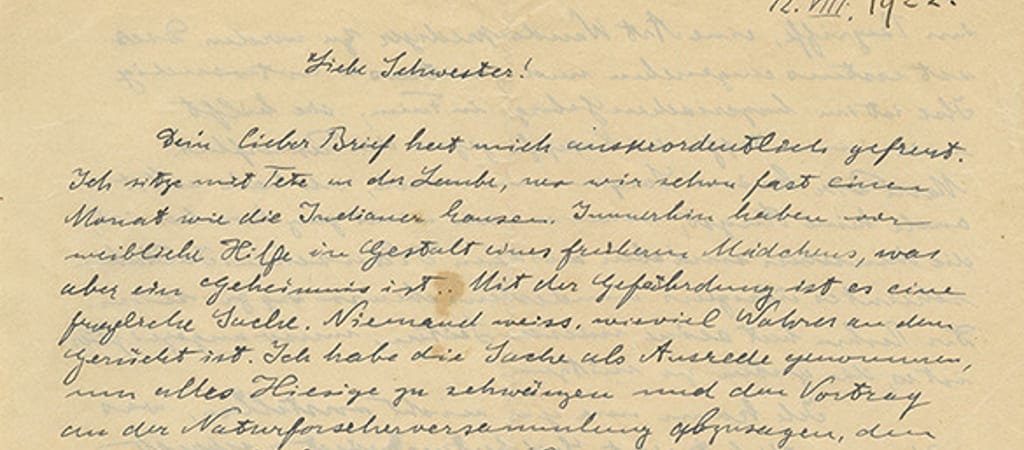 12. VIII. 1922.
Liebe Schwester!
Dein lieber Brief hat mich ausserordentlich gefreut.
Ich sitze mit Tete in der Laube, wo wir schon fast einen
Monat wie die Indianer hausen. Immerhin haben wir
weibliche Hilfe in Gestalt eines früheren Mädchens, was
aber ein Geheimnis ist. Mit der Gefährdung ist es eine
fragliche Sache. Niemand weiss, wieviel Wahres an dem
Gerücht ist. Ich habe die Sache als Ausrede genommen,
um alles Hiesige zu schwänzen und den Vortrag
an der Naturforscherversammlung abzusagen, den